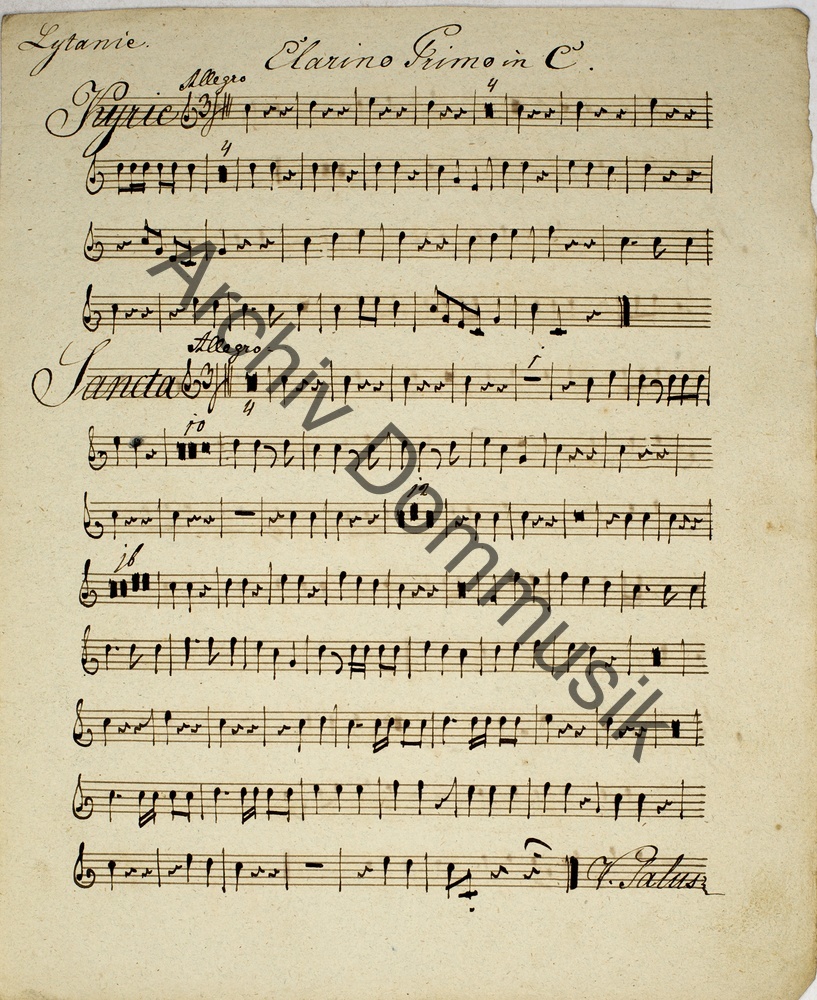 Lytanie.
Clarino Primo in C.
Allegro
Kyrie 3
4
4
Allegro.
Sancta 3
4
1
10
12
16
V. Salus
Archiv Dommusik